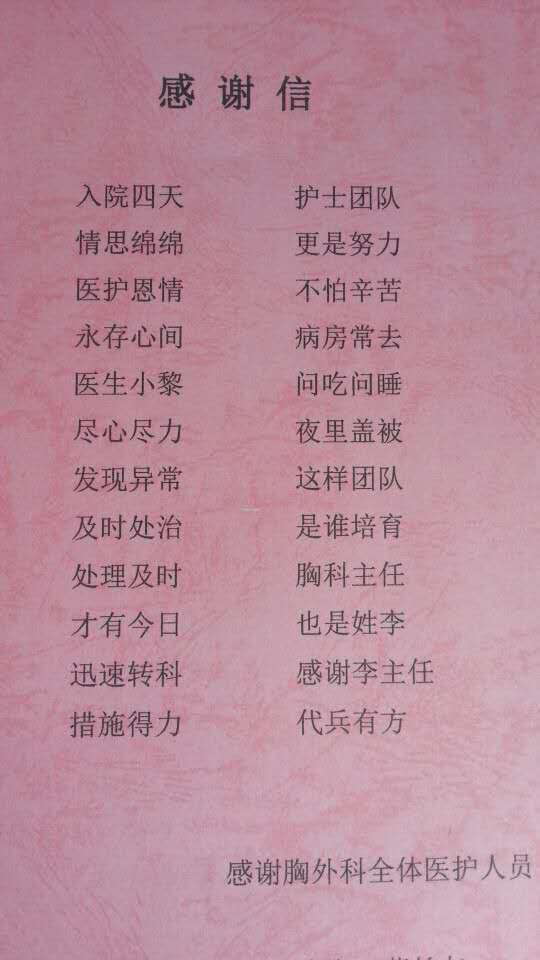 感谢信
入院四天
情思绵绵
医护恩情
永存心间
医生小黎
尽心尽力
发现异常
及时处治
处理及时
才有今日
迅速转科
措施得力
护士团队
更是努力
不怕辛苦
病房常去
问吃问睡
夜里盖被
这样团队
是谁培育
胸科主任
也是姓李
感谢李主任
代兵有方
感谢胸外科全体医护人员